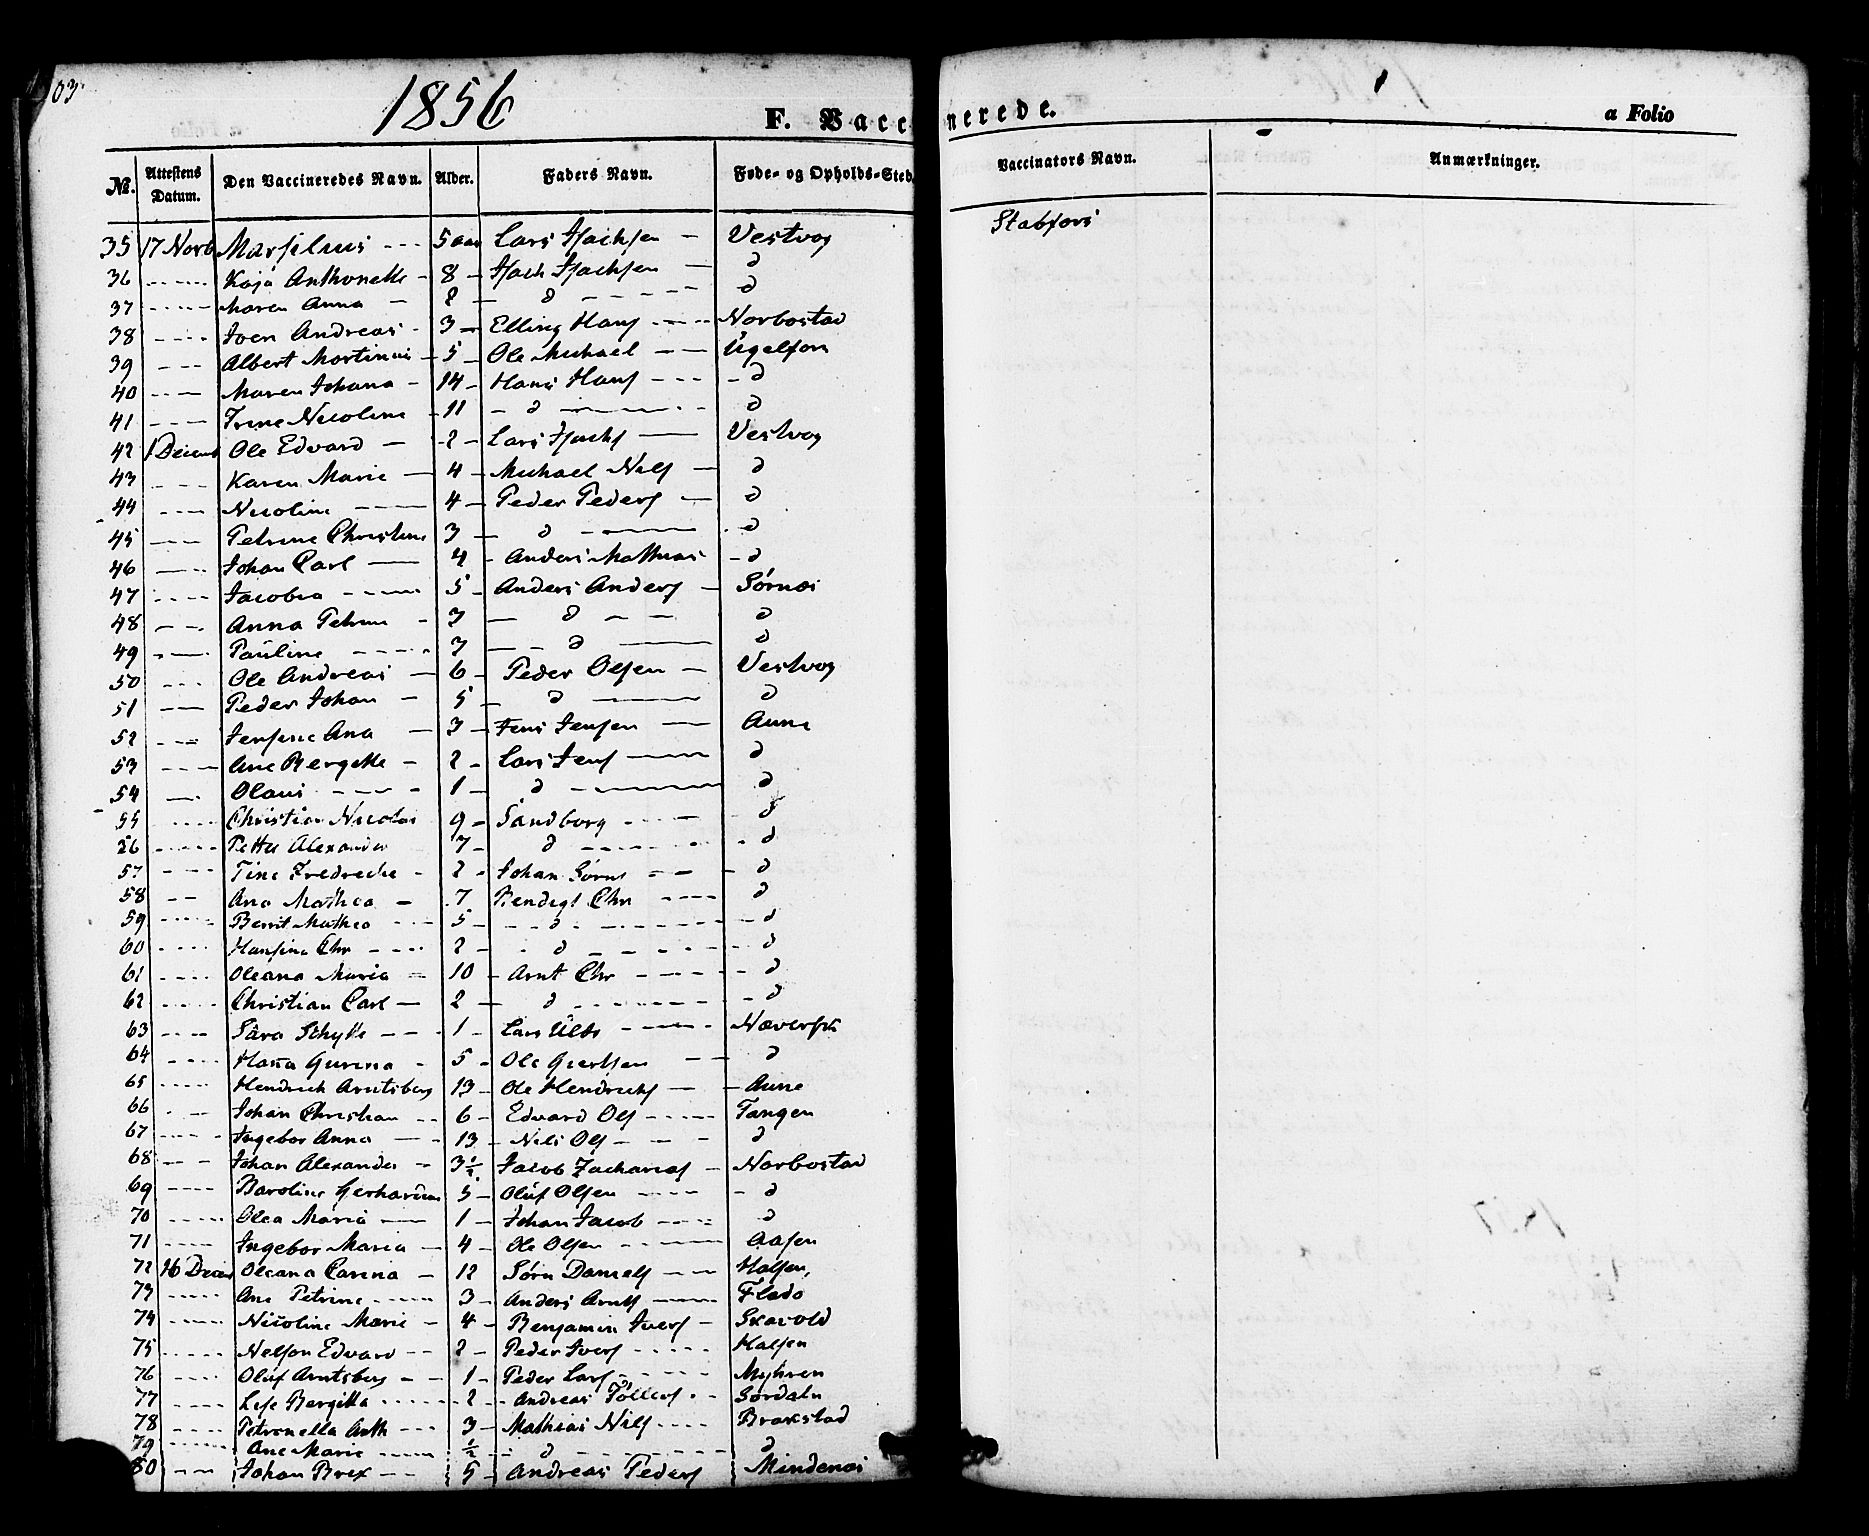 103
1856
F. Vaccinerede.
a Folio
No. Attestens Datum. Den Vaccineredes Navn. Alder. Faders Navn. Føde- og Opholds-Sted. Vaccinators Navn. Anmærkninger.
35 17 Novb Marselius - - - 5 aar Lars Isachsen - Vestvog Stabfors
36 Kaja Anthonette - 8 - Isach Isachsen - d
37 Maren Anna - 8 - d d
38 Joen Andreas - 3 - Elling Hans - Norbostad
39 Albert Martinus - 5 - Ole Michael - - Ugelfon
40 Maren Johana - 14 - Hans Hans - - - d
41 Trine Nicoline - 11 - d d
42 1 Decemb Ole Edvard - 2 - Lars Isachs - Vestvog
43 Karen Marie - 4 - Michael Nils - d
44 Nicoline - 4 - Peder Peders - d
45 Petrine Christine 3 - d d
46 Johan Carl - 4 - Anders Mathias - d
47 Jacobea - 5 - Anders Anders - Sørnæs
48 Anna Petrine - 3 - d d
49 Pauline - 7 - d d
50 Ole Andreas - 6 - Peder Olsen - Vestvog
51 Peder Johan - 5 - d d
52 Jensine Ana - 3 - Jens Jensen - Aune
53 Ane Bergitte - 2 - Lars Jens - d
54 Olaus - 1 - d d
55 Christian Nicolai 9 - Sandborg - d
56 Petter Alexander 7 - d - d
57 Tine Fredrecke - 2 - Johan Sørens - d
58 Ana Mathea - 7 Bendigt Chr - d
59 Berit Mathea 5 - d - d
60 Hansine Chr - 2 - d - d
61 Oleana Maria - 10 - Arnt Chr - d
62 Christian Carl - 2 - d - d
63 Sara Schytte - 1 - Lars Ulb - Næverf
64 Hana Gurina - 5 - Ole Giertsen - d
65 Hendrich Arntsberg 13 - Ole Hendrichs - Aune
66 Johan Christian - 6 - Edvard Ols - Tangen
67 Ingebor Anna - 13 - Nils Ols - d
68 Johan Alexander - 3½ - Jacob Zacharias - Norbostad
69 Baroline Gerhardine 5 - Oluf Olsen - d
70 Olea Maria - 1 - Johan Jacob - d
71 Ingebor Maria - 4 - Ole Olsen - Aasen
72 16 Decem Oleana Carina - 12 Sørn Daniels - Halsen,
73 Ane Petrine - 3 - Anders Arnts - Flado
74 Nicoline Marie - 4 - Benjamin Ivers - Skavold
75 Nelson Edvard - 2 - Peder Ivers - Halsen
76 Oluf Arntsberg - 1 - Peder Lars - Myhren
77 Lese Bergitta - 2 - Andreas Tøllefs - Sørdaln
78 Petronella Anth 3 - Mathias Nils - Brakstad
79 Ane Marie - ½ - d d
80 Johan Brex - 5 - Andreas Peders Mindenæs